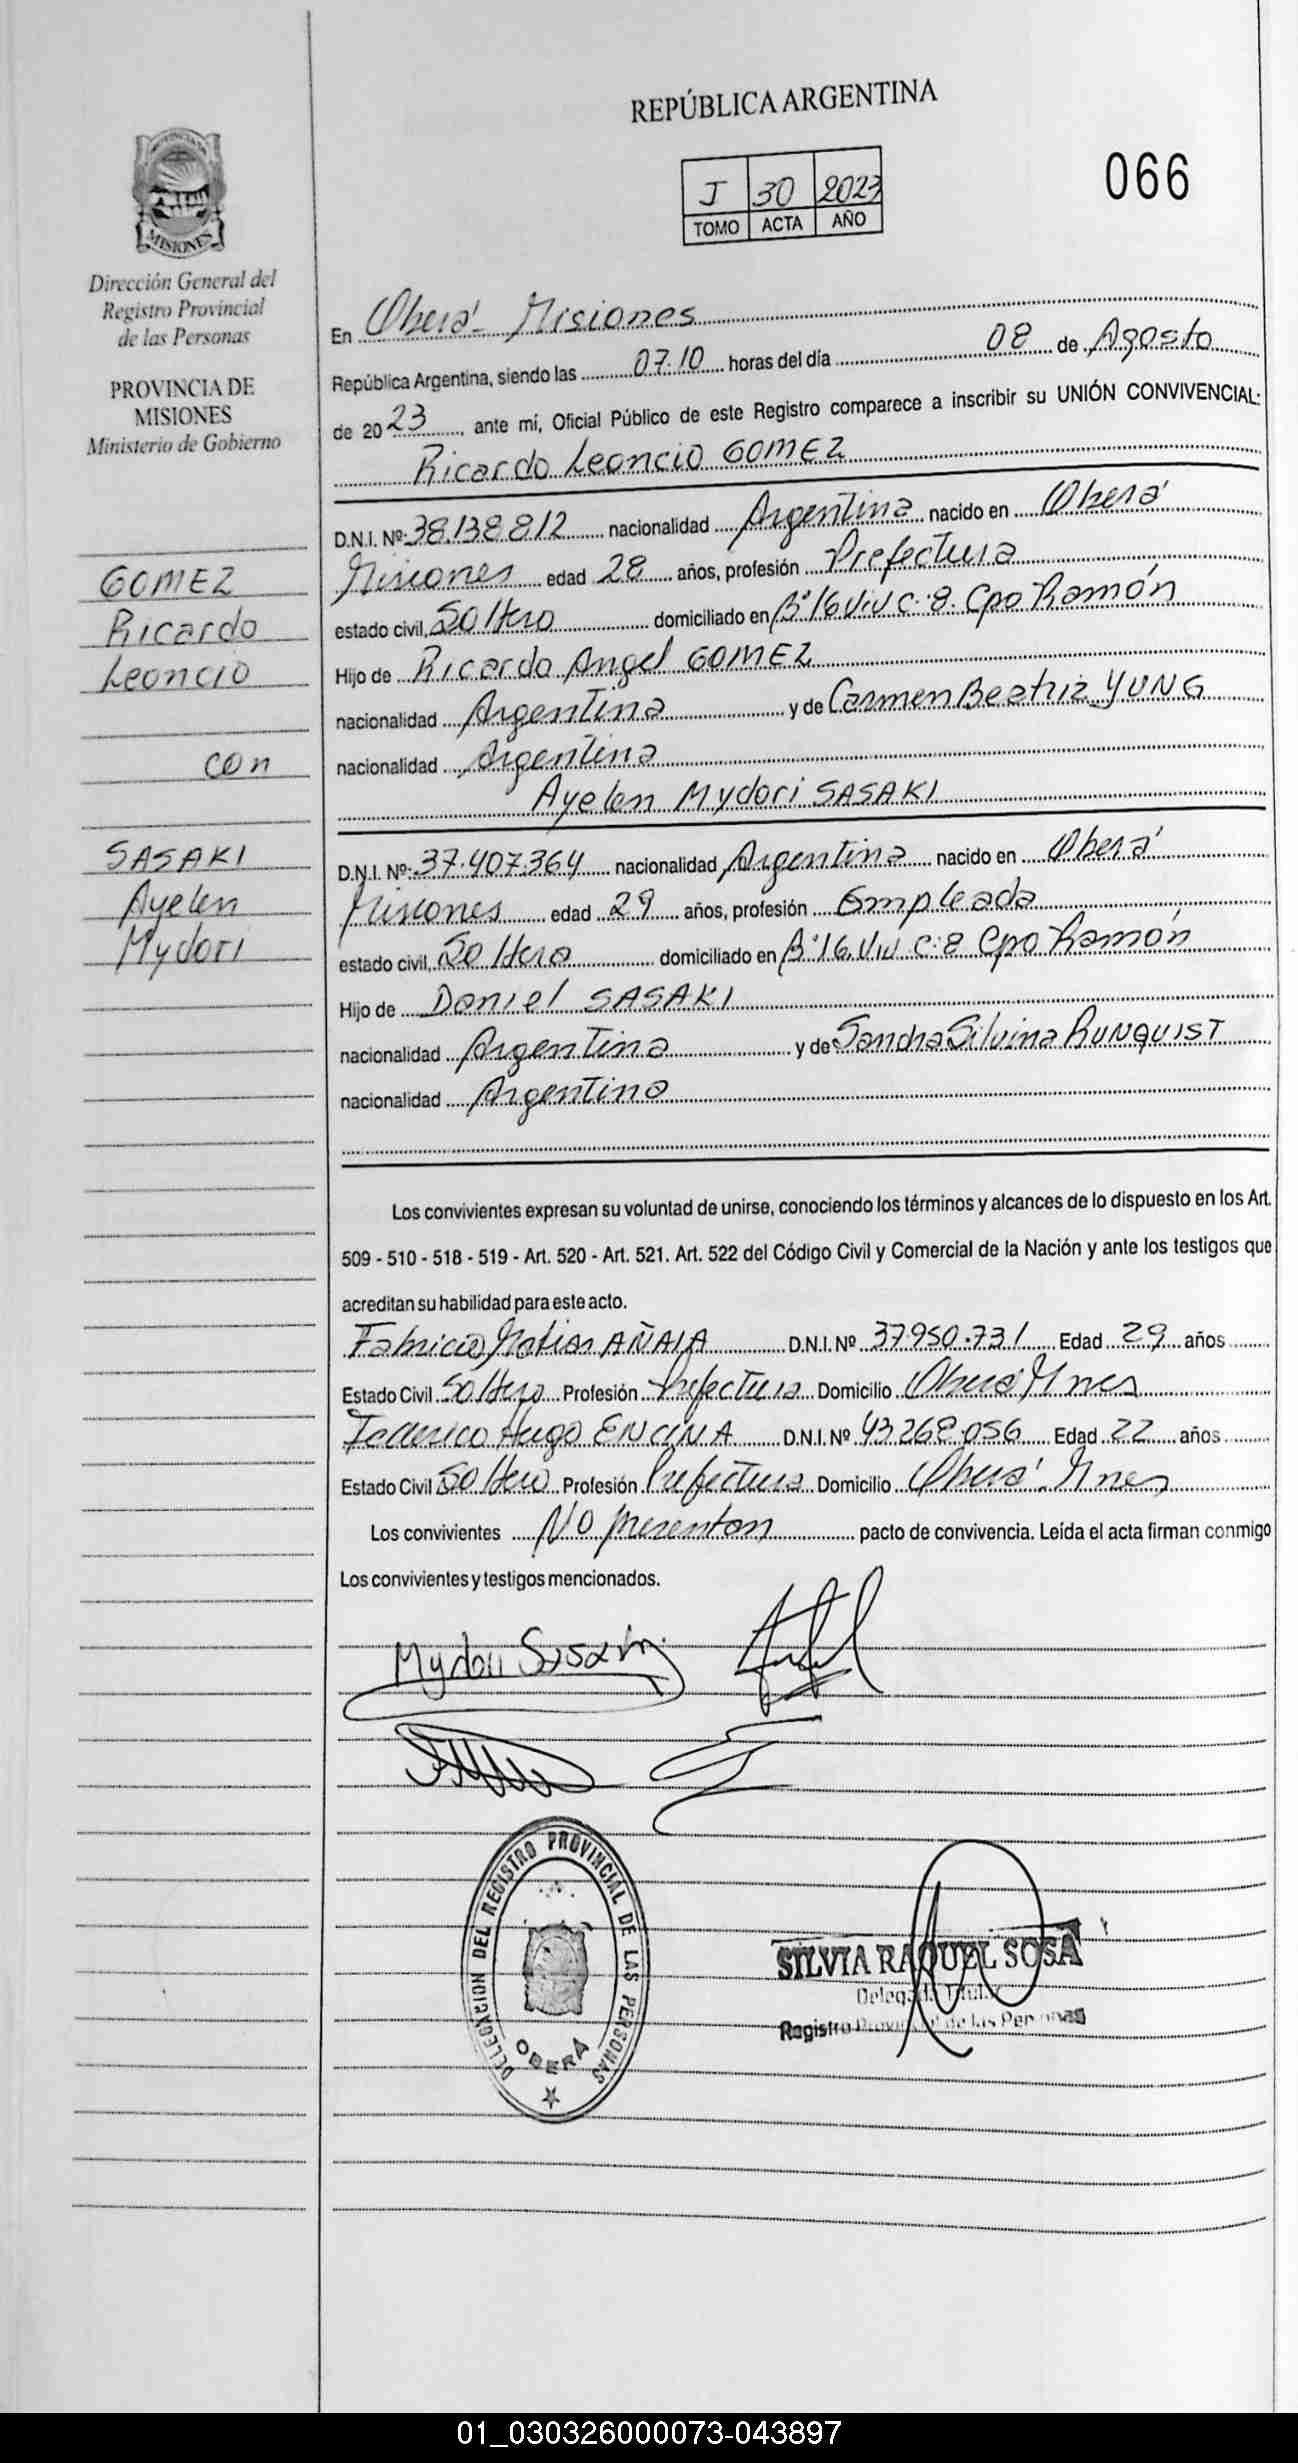 REPÚBLICA ARGENTINA
066
J 30 2023
TOMO ACTA AÑO
PROVINCIA DE
MISIONES
Dirección General del
Registro Provincial
de las Personas
PROVINCIA DE
MISIONES
Ministerio de Gobierno
GOMEZ
Ricardo
Leoncio
con
SASAKI
Ayelen
Mydori
En Oberá - Misiones
República Argentina, siendo las 07.10 horas del día 08 de Agosto
de 2023, ante mí, Oficial Público de este Registro comparece a inscribir su UNIÓN CONVIVENCIAL:
Ricardo Leoncio GOMEZ
D.N.I. Nº: 38.138.812 nacionalidad Argentina nacido en Oberá
Misiones edad 28 años, profesión Prefectura
estado civil, Soltero domiciliado en B° 16 Viv C: 8. Cpo Ramón
Hijo de Ricardo Angel GOMEZ
nacionalidad Argentina y de Carmen Beatriz YUNG
nacionalidad Argentina
Ayelen Mydori SASAKI
D.N.I. Nº: 37.407.364 nacionalidad Argentina nacido en Oberá
Misiones edad 29 años, profesión Empleada
estado civil, Soltera domiciliado en B° 16 Viv C: 8 Cpo Ramón
Hijo de Daniel SASAKI
nacionalidad Argentina y de Sandra Silvina RUNQUIST
nacionalidad Argentina
Los convivientes expresan su voluntad de unirse, conociendo los términos y alcances de lo dispuesto en los Art.
509 - 510 - 518 - 519 - Art. 520 - Art. 521. Art. 522 del Código Civil y Comercial de la Nación y ante los testigos que
acreditan su habilidad para este acto.
Fabricio Matias AÑAIA D.N.I. Nº 37.950.731 Edad 29 años
Estado Civil Soltero Profesión Prefectura Domicilio Oberá Mnes
Federico Hugo ENCINA D.N.I. Nº 43.268.056 Edad 22 años
Estado Civil Soltero Profesión Prefectura Domicilio Oberá. Mnes
Los convivientes No presentan pacto de convivencia. Leída el acta firman conmigo
Los convivientes y testigos mencionados.
Mydori Sasaki
DELEGACION DEL REGISTRO PROVINCIAL DE LAS PERSONAS
OBERÁ
SILVIA RAQUEL SOSA
Delegada Titular
Registro Provincial de las Personas
01_030326000073-043897